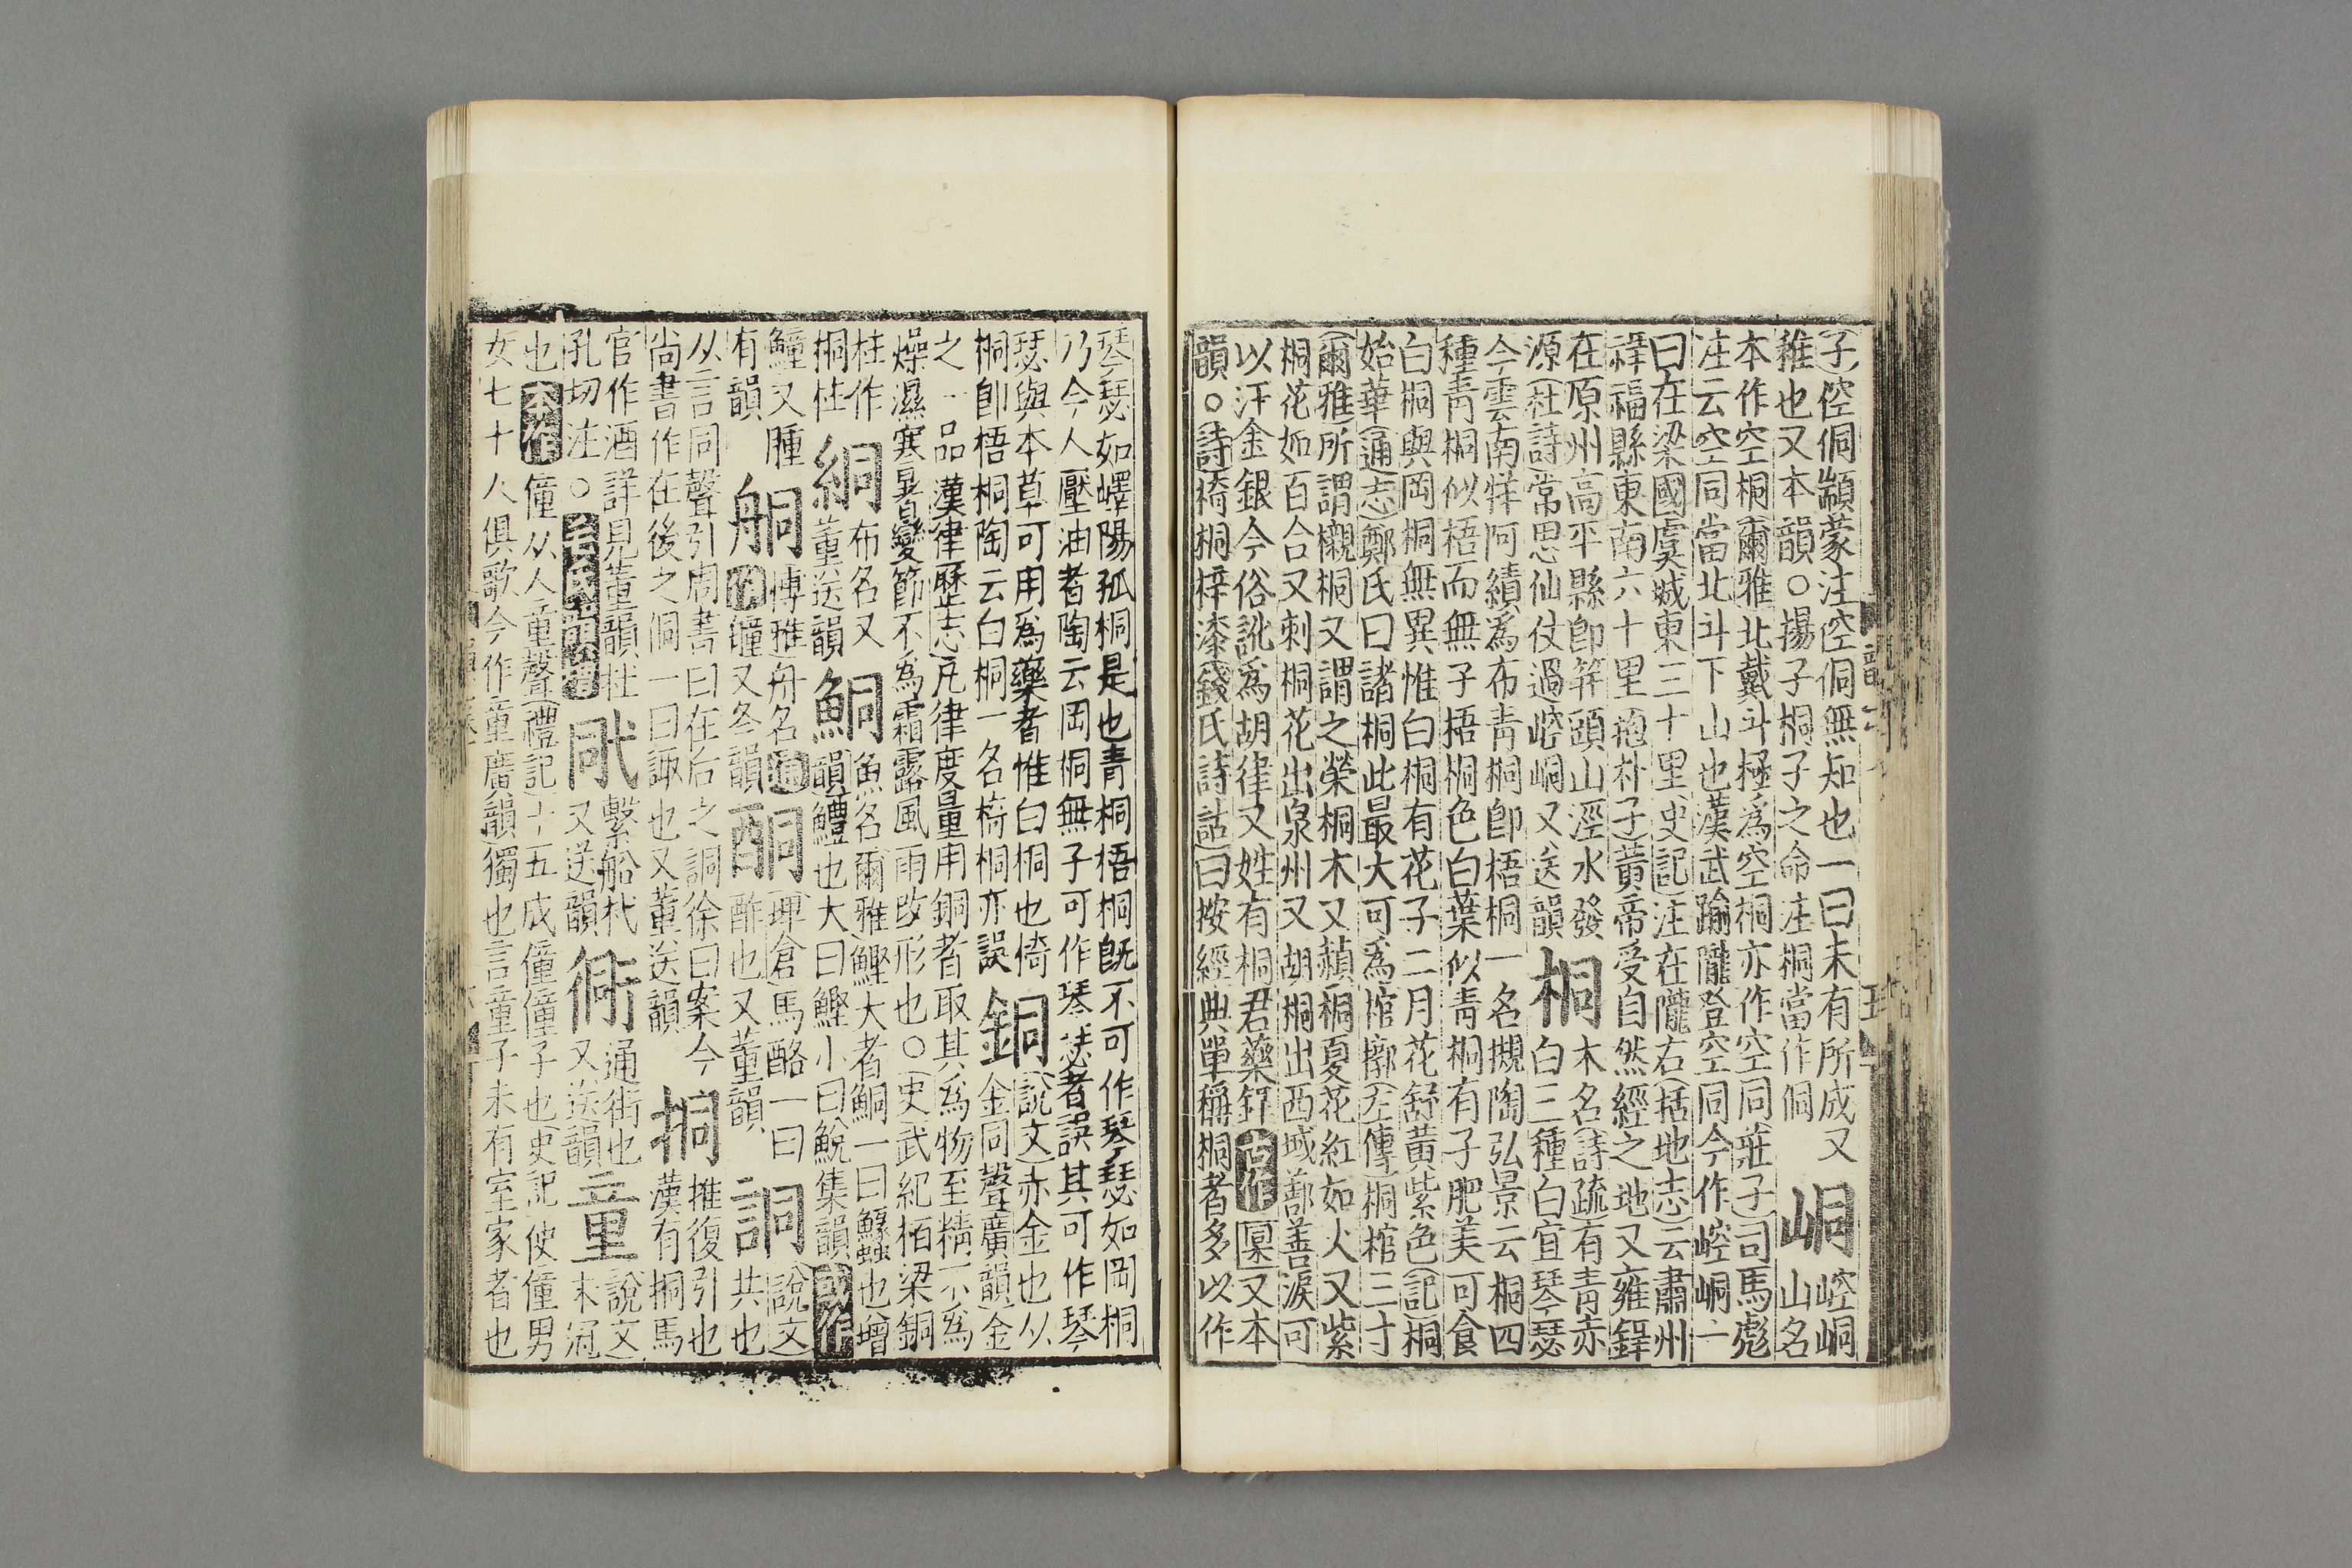 子倥侗顓蒙注倥侗無知也一曰未有所成又
稚也又本韻○揚子桐子之命注桐當作侗
峒
崆峒
山名
本作空桐爾雅北戴斗極爲空桐亦作空同莊子司馬彪
注云空同當北斗下山也漢武踰隴登空同今作崆峒一
曰在梁國虞城東三十里史記注在隴右括地志云肅州
祿福縣東南六十里抱朴子黃帝受自然經之地又雍錄
在原州高平縣卽笄頭山涇水發
源杜詩常思仙仗過崆峒又送韻
桐
木名詩疏有青赤
白三種白宜琴瑟
今雲南牂牁績爲布青桐卽梧桐一名櫬陶弘景云桐四
種青桐似梧而無子梧桐色白葉似青桐有子肥美可食
白桐與岡桐無異惟白桐有花子二月花舒黃紫色記桐
始華通志鄭氏曰諸桐此最大可爲棺槨左傳桐棺三寸
爾雅所謂櫬桐又謂之榮桐木又蘋桐夏花紅如火又紫
桐花如百合又刺桐花出泉州又胡桐出西域鄯善淚可
以汗金銀今俗訛爲胡律又姓有桐君藥錄古作𣑸又本
韻○詩椅桐梓漆錢氏詩詁曰按經典單稱桐者多以作
琴瑟如嶧陽孤桐是也青桐梧桐旣不可作琴瑟如岡桐
乃今人壓油者陶云岡桐無子可作琴瑟者誤其可作琴
瑟與本草可用爲藥者惟白桐也倚
桐卽梧桐陶云白桐一名椅桐亦誤
銅
說文赤金也从
金同聲廣韻金
之一品漢律歷志凡律度量用銅者取其爲物至精不爲
燥濕寒暑變節不爲霜露風雨改形也○史武紀栢梁銅
柱作
桐柱
絧
布名又
董送韻
鮦
魚名爾雅鰹大者鮦一曰鱺也增
韻鱧也大曰鰹小曰鮵集韻或作
鱦又腫
有韻
舸
博雅舟名
艟又冬韻
酮
埤倉馬酪一曰
酢也又董韻
詷
說文
共也
从言同聲引周書曰在后之詷徐曰案今
尚書作在後之侗一曰諏也又董送韻
挏
推復引也
漢有挏馬
官作酒詳見董韻杜
孔切注○
繫船杙
又送韻
衕
通街也
又送韻
童
說文
未冠
也本作僮从人童聲禮記十五成僮僮子也史記使僮男
女七十人俱歌今作童廣韻獨也言童子未有室家者也